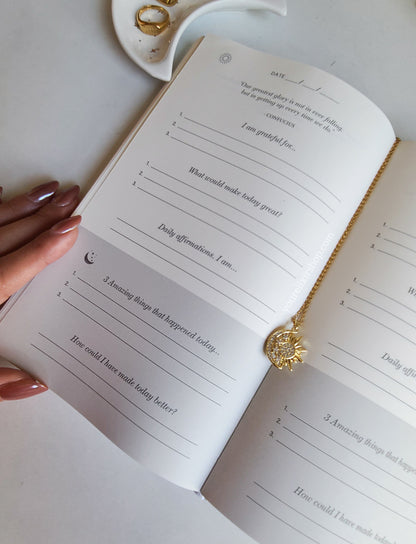 DATE __/__/__
"Our greatest glory is not in ever falling,
but in getting up every time we do."
-CONFUCIUS
I am grateful for...
1.
2.
3.
What would make today great?
1.
2.
3.
Daily affirmations, I am...
3 Amazing things that happened today...
1.
2.
3.
How could I have made today better?
1.
2.
3.
1.
2.
3.
Daily affi
3 Amazing things that happen
1.
2.
3.
How could I have made today